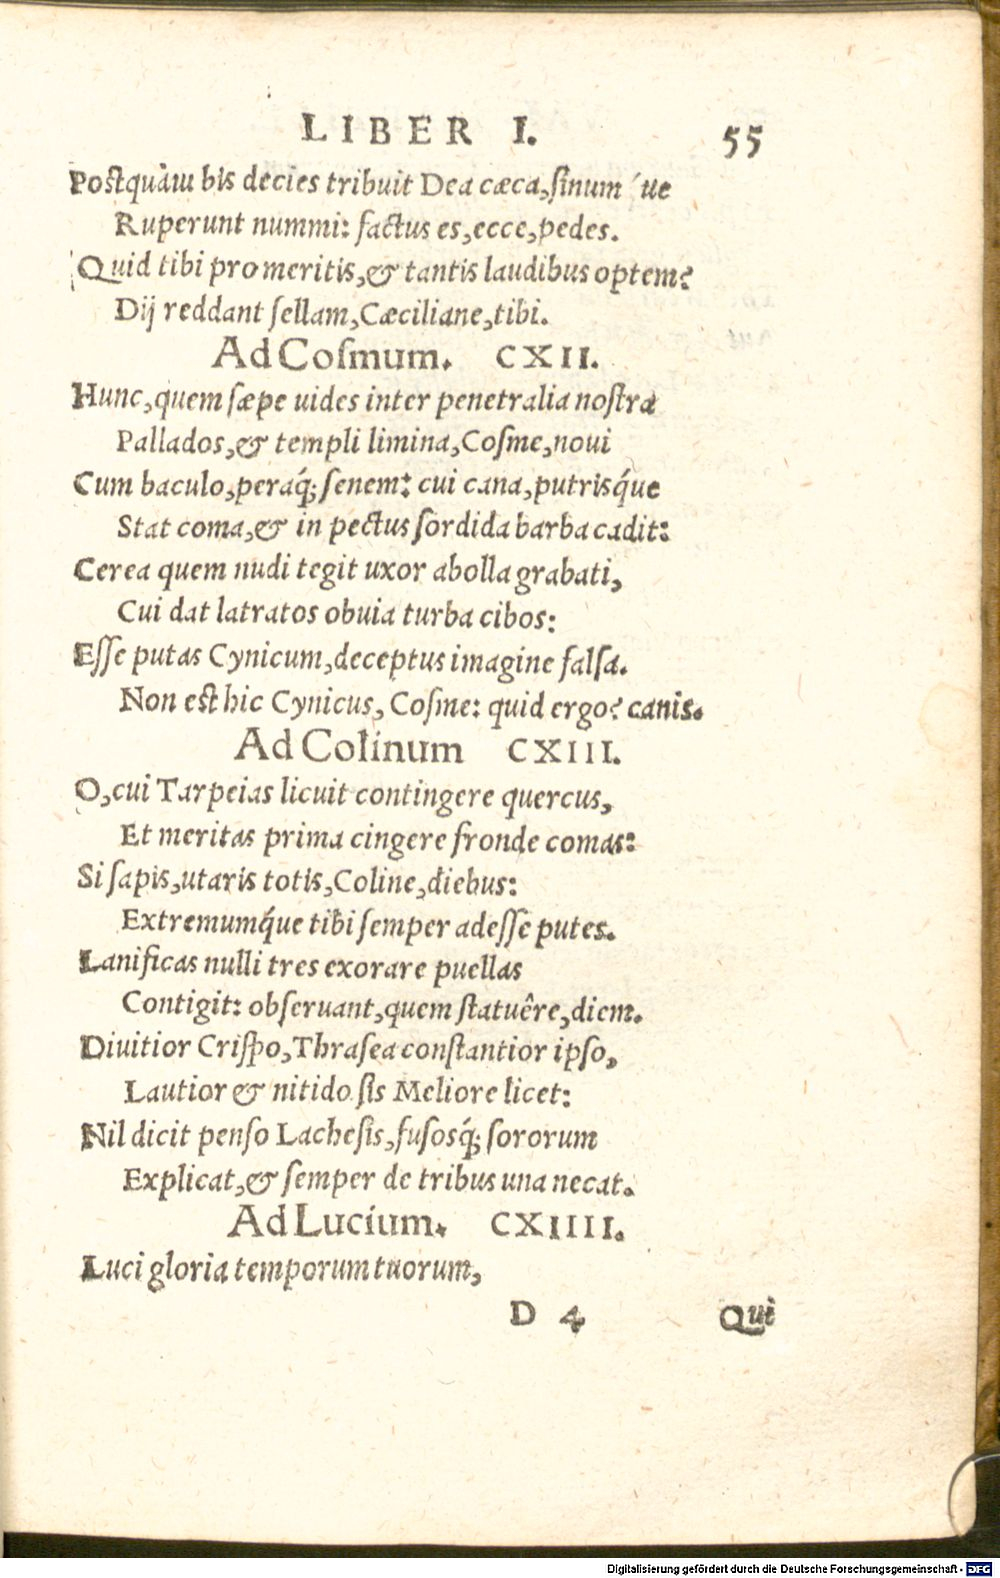 LIBER I. 55
Postquàm bis decies tribuit Dea cæca, sinum´ue
Ruperunt nummi: factus es, ecce, pedes.
Quid tibi pro meritis, & tantis laudibus optem?
Dij reddant sellam, Cæciliane, tibi.
Ad Cosmum. CXII.
Hunc, quem sæpe uides inter penetralia nostræ
Pallados, & templi limina, Cosme, noui
Cum baculo, peraq́; senem: cui cana, putrisq́ue
Stat coma, & in pectus sordida barba cadit:
Cerea quem nudi tegit uxor abolla grabati,
Cui dat latratos obuia turba cibos:
Esse putas Cynicum, deceptus imagine falsa.
Non est hic Cynicus, Cosme: quid ergo? canis.
Ad Colinum CXIII.
O, cui Tarpeias licuit contingere quercus,
Et meritas prima cingere fronde comas:
Si sapis, utaris totis, Coline, diebus:
Extremumq́ue tibi semper adesse putes.
Lanificas nulli tres exorare puellas
Contigit: obseruant, quem statuêre, diem.
Diuitior Crispo, Thrasea constantior ipso,
Lautior & nitido sis Meliore licet:
Nil dicit penso Lachesis, fusosq́; sororum
Explicat, & semper de tribus una necat.
Ad Lucium. CXIIII.
Luci gloria temporum tuorum,
D 4 Qui
Digitalisierung gefördert durch die Deutsche Forschungsgemeinschaft - DFG